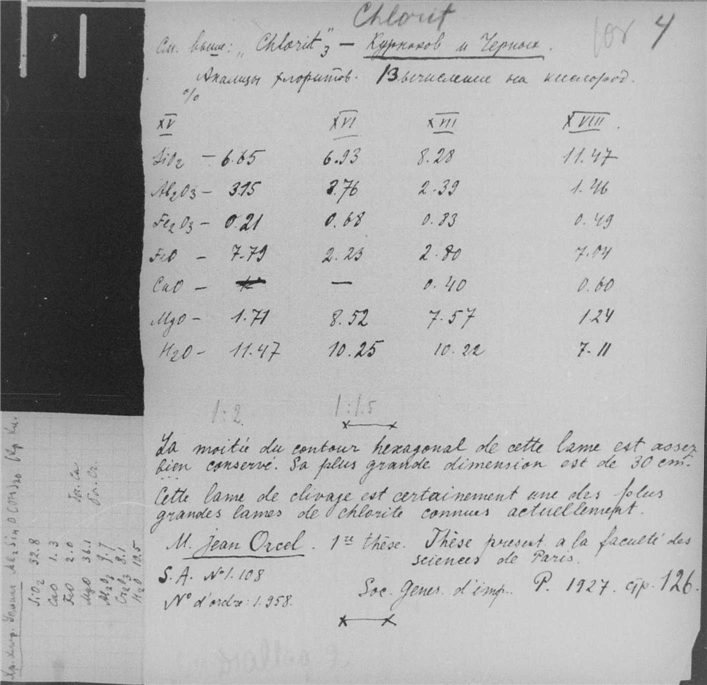 Chlorit
См. выше: „Chlorit"₃ — Курнаков и Черных. 4
% Анализы хлоритов. Вычисление на кислород.
XV XVI XVII XVIII.
SiO₂ — 6.65 6.93 8.28 11.47
Al₂O₃ — 3.15 8.76 2.39 1.46
Fe₂O₃ — 0.21 0.68 0.83 0.49
FeO — 7.79 2.23 2.80 7.04
CaO — — 0.40 0.60
MgO — 1.71 8.52 7.57 1.24
H₂O — 11.47 10.25 10.22 7.11
1:2 1:1.5
La moitiée du contour hexagonal de cette lame est assez
bien conservé. Sa plus grande dimension est de 30 cm.
Cette lame de clivage est certainement une des plus
grandes lames de chlorite connues actuellement.
M. Jean Orcel. 1re thèse. Thèse present. a la faculté des
sciences de Paris.
S.A. N° 1.108
N° d'ordre: 1.958. Soc. génér. d'imp. P. 1927. стр. 126.
SiO₂ 32.8
CaO 1.3
FeO 2.0
MgO 36.1
Al₂O₃ 9.7
Cr₂O₃ 8.1
H₂O 12.5